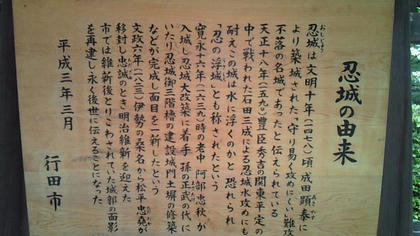 忍城の由来
忍城は文明十年(一四七八)頃成田顕泰に
より築城された。「守り易く攻めにくい難攻
不落の名城であった」と伝えられている
天正十八年(一五九〇)豊臣秀吉の関東平定の
中で戦われた石田三成による忍城水攻めにも
耐えこの城は水に浮くのかと恐れられ
「忍の浮城」とも称されたという
寛永十六年(一六三九)時の老中阿部忠秋が
入城し忍城大改築に着手孫の正武の代に
いたり忍城御三階櫓の建設城門土塀の修築
などが完成し面目を一新したという
文政六年(一八二三)伊勢の桑名から松平忠堯が
移封し忠誠のとき明治維新を迎えた
市では維新後とりこわされていた城郭の面影
を再建し永く後世に伝えることになった
平成三年三月
行田市